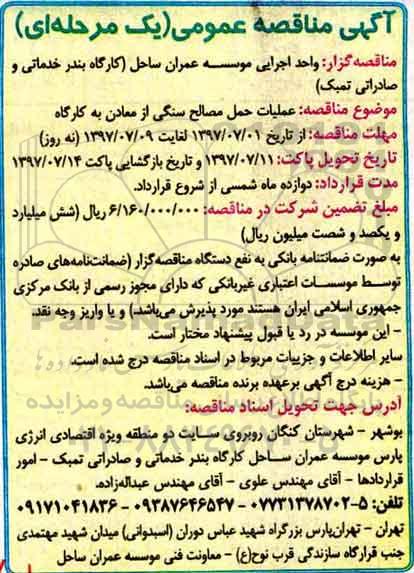 آگهی مناقصه عمومی(یک مرحله‌ای)
مناقصه‌گزار: واحد اجرایی موسسه عمران ساحل (کارگاه بندر خدماتی و
صادراتی تمبک)
موضوع مناقصه: عملیات حمل مصالح سنگی از معادن به کارگاه
مهلت مناقصه: از تاریخ ۱۳۹۷/۰۷/۰۱ لغایت ۱۳۹۷/۰۷/۰۹ (نه روز)
تاریخ تحویل پاکت: ۱۳۹۷/۰۷/۱۱ و تاریخ بازگشایی پاکت ۱۳۹۷/۰۷/۱۴
مدت قرارداد: دوازده ماه شمسی از شروع قرارداد.
مبلغ تضمین شرکت در مناقصه: ۶/۱۶۰/۰۰۰/۰۰۰ ریال (شش میلیارد
و یکصد و شصت میلیون ریال)
به صورت ضمانتنامه بانکی به نفع دستگاه مناقصه‌گزار (ضمانت‌نامه‌های صادره
توسط موسسات اعتباری غیربانکی که دارای مجوز رسمی از بانک مرکزی
جمهوری اسلامی ایران هستند مورد پذیرش می‌باشد.) و یا واریز وجه نقد.
- این موسسه در رد یا قبول پیشنهاد مختار است.
سایر اطلاعات و جزییات مربوط در اسناد مناقصه درج شده است.
- هزینه درج آگهی برعهده برنده مناقصه می‌باشد.
آدرس جهت تحویل اسناد مناقصه:
بوشهر - شهرستان کنگان روبروی سایت دو منطقه ویژه اقتصادی انرژی
پارس موسسه عمران ساحل کارگاه بندر خدماتی و صادراتی تمبک - امور
قراردادها - آقای مهندس علوی - آقای مهندس عبداله‌زاده.
تلفن: ۵-۰۷۷۳۱۳۷۸۷۰۲ - ۰۹۳۸۷۶۴۶۵۴۷ - ۰۹۱۷۱۰۴۱۸۳۶
تهران - تهران‌پارس بزرگراه شهید عباس دوران (اسبدوانی) میدان شهید مهتمدی
جنب قرارگاه سازندگی قرب نوح(ع) - معاونت فنی موسسه عمران ساحل